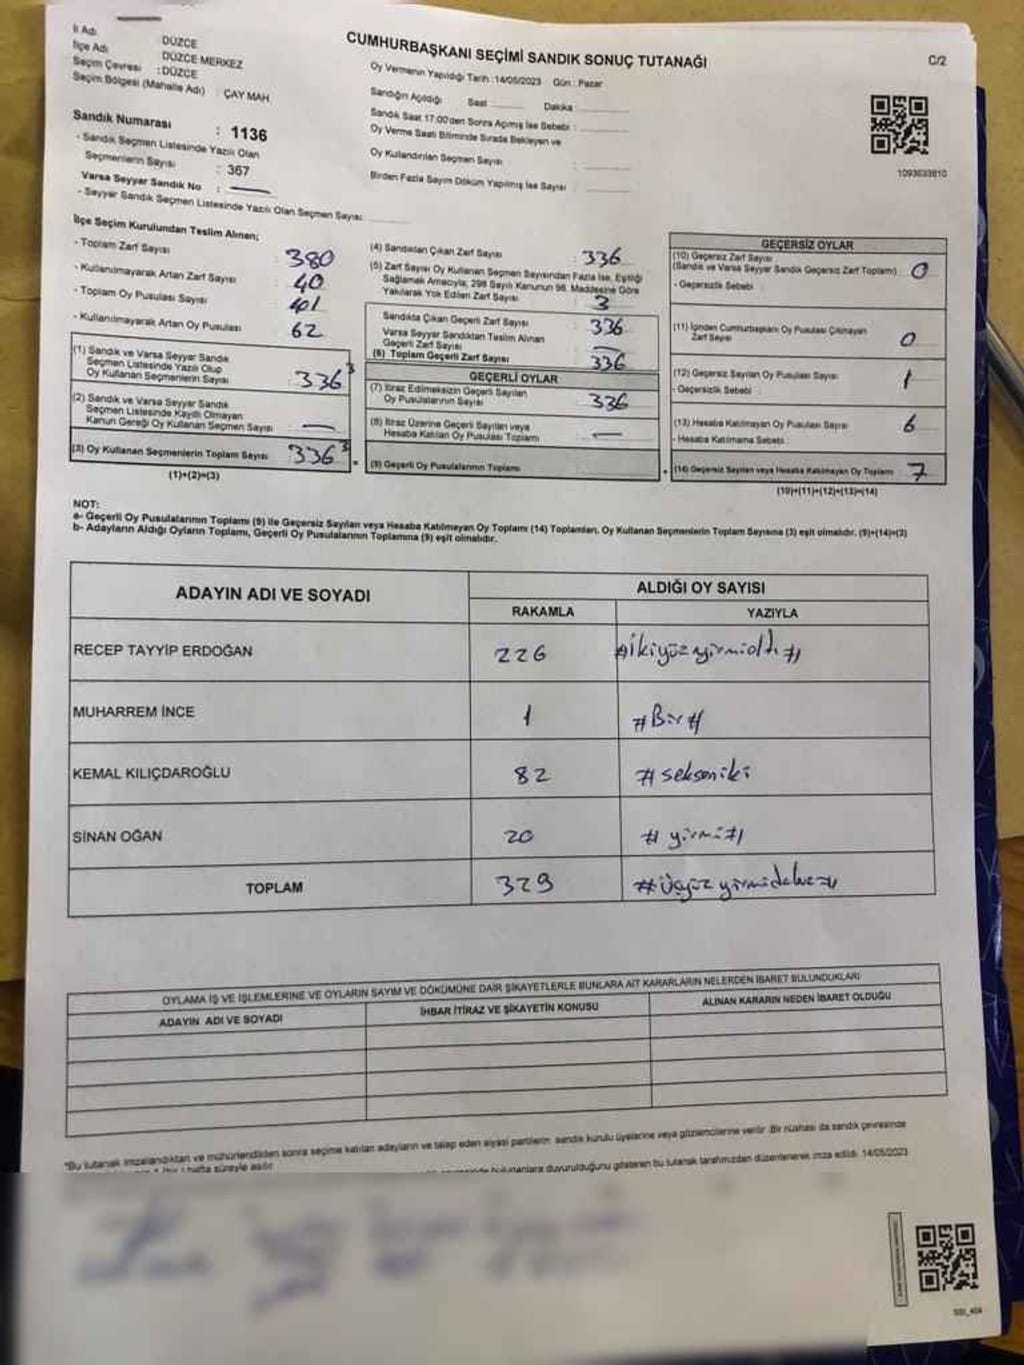 CUMHURBAŞKANI SEÇİMİ SANDIK SONUÇ TUTANAĞI
C/2
İl Adı DÜZCE
İlçe Adı DÜZCE MERKEZ
Seçim Çevresi : DÜZCE
Seçim Bölgesi (Mahalle Adı) : ÇAY MAH
Sandık Numarası : 1136
- Sandık Seçmen Listesinde Yazılı Olan
Seçmenlerin Sayısı : 367
Varsa Seyyar Sandık No :
- Seyyar Sandık Seçmen Listesinde Yazılı Olan Seçmen Sayısı:
Oy Vermenin Yapıldığı Tarih :14/05/2023 Gün : Pazar
Sandığın Açıldığı Saat Dakika
Sandık Saat 17:00'den Sonra Açılmış İse Sebebi :
Oy Verme Saati Bitiminde Sırada Bekleyen ve
Oy Kullandırılan Seçmen Sayısı :
Birden Fazla Sayım Döküm Yapılmış İse Sayısı :
1093033810
İlçe Seçim Kurulundan Teslim Alınan;
- Toplam Zarf Sayısı : 380
- Kullanılmayarak Artan Zarf Sayısı : 40
- Toplam Oy Pusulası Sayısı : 401
- Kullanılmayarak Artan Oy Pusulası : 62
(1) Sandık ve Varsa Seyyar Sandık
Seçmen Listesinde Yazılı Olup
Oy Kullanan Seçmenlerin Sayısı : 336
(2) Sandık ve Varsa Seyyar Sandık
Seçmen Listesinde Kayıtlı Olmayan
Kanun Gereği Oy Kullanan Seçmen Sayısı : —
(3) Oy Kullanan Seçmenlerin Toplam Sayısı : 336
(1)+(2)=(3)
(4) Sandıktan Çıkan Zarf Sayısı : 336
(5) Zarf Sayısı Oy Kullanan Seçmen Sayısından Fazla İse, Eşitliği
Sağlamak Amacıyla, 298 Sayılı Kanunun 98. Maddesine Göre
Yakılarak Yok Edilen Zarf Sayısı : 3
Sandıkta Çıkan Geçerli Zarf Sayısı : 336
Varsa Seyyar Sandıktan Teslim Alınan
Geçerli Zarf Sayısı : —
(6) Toplam Geçerli Zarf Sayısı : 336
GEÇERLİ OYLAR
(7) İtiraz Edilmeksizin Geçerli Sayılan
Oy Pusulalarının Sayısı : 336
(8) İtiraz Üzerine Geçerli Sayılan veya
Hesaba Katılan Oy Pusulası Toplamı : —
(9) Geçerli Oy Pusulalarının Toplamı :
GEÇERSİZ OYLAR
(10) Geçersiz Zarf Sayısı
(Sandık ve Varsa Seyyar Sandık Geçersiz Zarf Toplamı) : 0
- Geçersizlik Sebebi :
(11) İçinden Cumhurbaşkanı Oy Pusulası Çıkmayan
Zarf Sayısı : 0
(12) Geçersiz Sayılan Oy Pusulası Sayısı : 1
- Geçersizlik Sebebi :
(13) Hesaba Katılmayan Oy Pusulası Sayısı : 6
- Hesaba Katılmama Sebebi :
(14) Geçersiz Sayılan veya Hesaba Katılmayan Oy Toplamı : 7
(10)+(11)+(12)+(13)=(14)
NOT:
a- Geçerli Oy Pusulalarının Toplamı (9) ile Geçersiz Sayılan veya Hesaba Katılmayan Oy Toplamı (14) Toplamları, Oy Kullanan Seçmenlerin Toplam Sayısına (3) eşit olmalıdır. (9)+(14)=(3)
b- Adayların Aldığı Oyların Toplamı, Geçerli Oy Pusulalarının Toplamına (9) eşit olmalıdır.
ADAYIN ADI VE SOYADI
ALDIĞI OY SAYISI
RAKAMLA YAZIYLA
RECEP TAYYİP ERDOĞAN 226 #ikiyüzyirmialtı#
MUHARREM İNCE 1 #Bir#
KEMAL KILIÇDAROĞLU 82 #sekseniki
SİNAN OĞAN 20 #yirmi#
TOPLAM 329 #üçyüzyirmidokuz#
OYLAMA İŞ VE İŞLEMLERİNE VE OYLARIN SAYIM VE DÖKÜMÜNE DAİR ŞİKAYETLERLE BUNLARA AİT KARARLARIN NELERDEN İBARET BULUNDUKLARI
ADAYIN ADI VE SOYADI İHBAR İTİRAZ VE ŞİKAYETİN KONUSU ALINAN KARARIN NEDEN İBARET OLDUĞU
*Bu tutanak imzalandıktan ve mühürlendikten sonra seçime katılan adayların ve talep eden siyasi partilerin sandık kurulu üyelerine veya gözlemcilerine verilir. Bir nüshası da sandık çevresinde
1 hafta süreyle asılır.
bulunanlara duyurulduğunu gösteren bu tutanak tarafımızdan düzenlenerek imza edildi. 14/05/2023